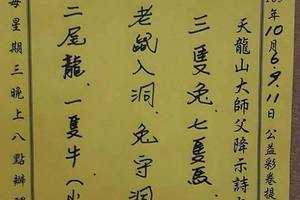 年10月6.9.11日公益彩卷提
天龍山大師父降示詩
三隻兔.七隻馬.
老鼠入洞.兔守洞
二尾龍.一隻牛(小
每星期三晚上八點辦